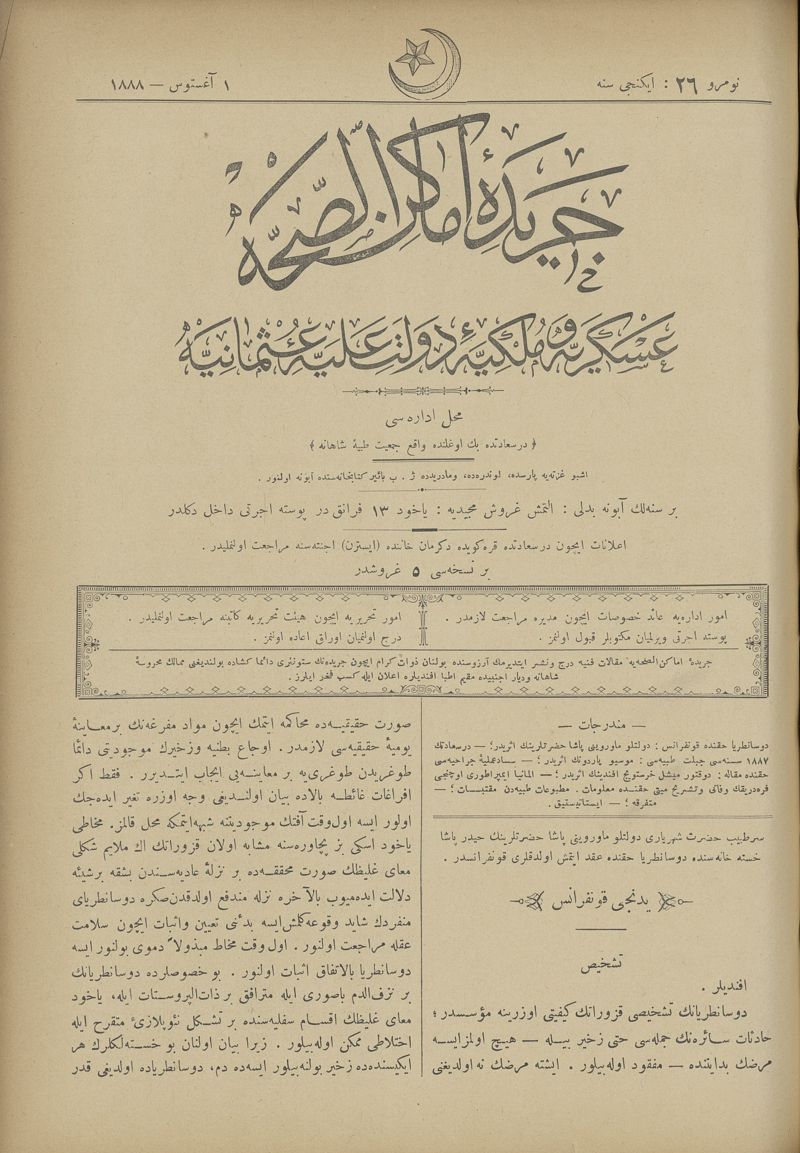 نومرو ٢٦ : ایكنجی سنه
١ آغستوس — ١٨٨٨
جریدۀ اماكن الصحه
عسكریه و ملكیۀ دولت علیۀ عثمانیه
محل اداره سی
﴿ درسعادتده بك اوغلنده واقع جمعیت طبیۀ شاهانه ﴾
اشبو غزته‌یه پارسده، لوندره‌ده، ومادریدده ژ . ب بائیر كتابخانه‌سنده آبونه اولنور .
بر سنه‌لك آبونه بدلی : التمش غروش مجیدیه : یاخود ١٣ فرانق در پوسته اجرتی داخل دكلدر
اعلانات ایچون درسعادتده قره‌كویده دكرمان خاننده (ایسترن) اجنته‌سنه مراجعت اولنملیدر .
بر نسخه‌سی ٥ غروشدر
امور اداره‌یه عائد خصوصات ایچون مدیره مراجعت لازمدر .
پوسته اجرتی ویرلمیان مكتوبلر قبول اولنمز .
امور تحریریه ایچون هیئت تحریریه كاتبنه مراجعت اولنملیدر .
درج اولنمیان اوراق اعاده اولنمز .
جریدۀ اماكن‌الصحه‌یه مقالات فنیه درج ونشر ایتدیرمك آرزوسنده بولنان ذوات كرام ایچون جریده‌نك ستونلری دائما كشاده بولندیغنی ممالك محروسۀ
شاهانه ودیار اجنبیده مقیم اطبا افندیلره اعلان ایله كسب فخر ایلرز .
— مندرجات —
دوسانطریا حقنده قونفرانس : دولتلو ماورویی پاشا حضرتلرینك اثریدر؛ — درسعادتك
١٨٨٧ سنه‌سی جبلت طبیه‌سی : موسیو پاردونك اثریدر؛ — سدا عملیۀ جراحیه‌سی
حقنده مقاله : دوقتور میشل خرستویج افندینك اثریدر؛ — المانیا ایمپراطوری اوچنجی
فره‌دریقك وفاتی وتشریح میتی حقنده معلومات . مطبوعات طبیه‌دن مقتبسات؛ —
متفرقه؛ — ایستاتیستیق .
سرطبیب حضرت شهریاری دولتلو ماورویی پاشا حضرتلرینك حیدر پاشا
خسته خانه‌سنده دوسانطریا حقنده عقد ایتمش اولدقلری قونفرانسدر .
یدنجی قونفرانس
تشخیص
افندیلر .
دوسانطریانك تشخیصی قزوراتك كیفیتی اوزرینه مؤسسدر؛
حادثات سائره‌نك جمله‌سی حتی زخیر بیله — هیچ اولمزایسه
مرضك بدایتنده — مفقود اوله‌بیلور . ایشته مرضك نه اولدیغنی
صورت حقیقیه‌ده محاكمه ایتمك ایچون مواد مفرغه‌نك بر معاینۀ
یومیۀ حقیقیه‌سی لازمدر . اوجاع بطنیه وزخیرك موجودیتی دائما
طوغریدن طوغری‌یه بر معاینه‌یی ایجاب ایتدیرر . فقط اكر
افراغات غائطه بالاده بیان اولندیغی وجه اوزره تغیر ایده‌جك
اولور ایسه اول‌وقت آفتك موجودیتنه شبهه‌ایتمكه محل قالمز. مخاطی
یاخود اسكی بز پچاوره‌سنه مشابه اولان قزوراتك اك ملایم شكلی
معای غلیظك صورت محققه‌ده بر نزلۀ عادیه‌سندن بشقه برشیئه
دلالت ایده‌میوب بالآخره نزله مندفع اولدقدن‌صكره دوسانطریای
منفردك شاید وقوعه‌كلمش‌ایسه بدئنی تعیین واثبات ایچون سلامت
عقله مراجعت اولنور . اول وقت مخاط مبذولاً دموی بولنور ایسه
دوسانطریا بالاتفاق اثبات اولنور . بو خصوصلرده دوسانطریانك
بر نزف‌الدم باصوری ایله مترافق بر ذات‌الپروستات ایله، یاخود
معای غلیظك اقسام سفلیه‌سنده بر تشكل نئوپلازیۀ متقرح ایله
اختلاطی ممكن اوله‌بیلور . زیرا بیان اولنان بو خسته‌لكلرك هر
ایكیسنده‌ده زخیر بولنه‌بیلور ایسه‌ده دم، دوسانطریاده اولدیغی قدر